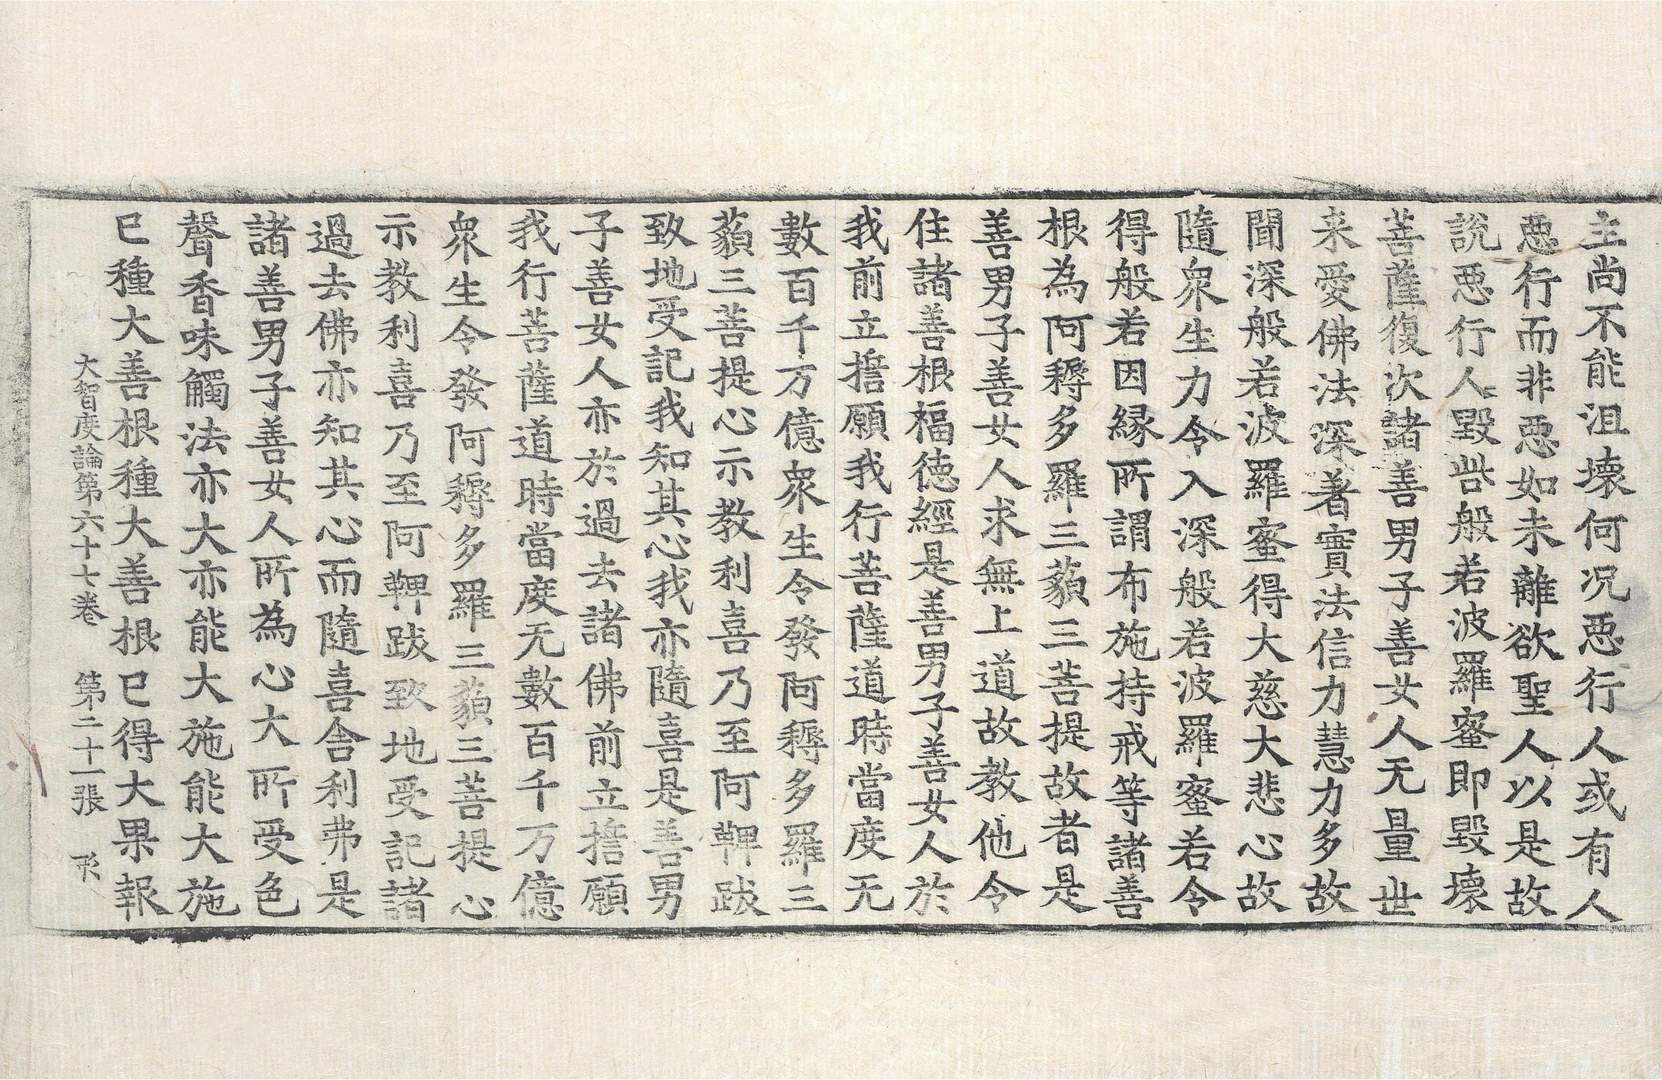 主尚不能沮壊何况惡行人或有人
惡行而非惡如未離欲聖人以是故
說惡行人毀呰般若波羅蜜即毀壊
菩薩復次諸善男子善女人无量世
来愛佛法深著實法信力慧力多故
聞深般若波羅蜜得大慈大悲心故
隨衆生力令入深般若波羅蜜若令
得般若因縁所謂布施持戒等諸善
根為阿耨多羅三藐三菩提故者是
善男子善女人求無上道故教他令
住諸善根福德經是善男子善女人於
我前立擔願我行菩薩道時當度无
數百千万億衆生令發阿耨多羅三
藐三菩提心示教利喜乃至阿鞞跋
致地受記我知其心我亦隨喜是善男
子善女人亦於過去諸佛前立擔願
我行菩薩道時當度无數百千万億
衆生令發阿耨多羅三藐三菩提心
示教利喜乃至阿鞞跋致地受記諸
過去佛亦知其心而隨喜舎利弗是
諸善男子善女人所為心大所受色
聲香味觸法亦大亦能大施能大施
已種大善根種大善根已得大果報
大智度論第六十七卷 第二十一張 形